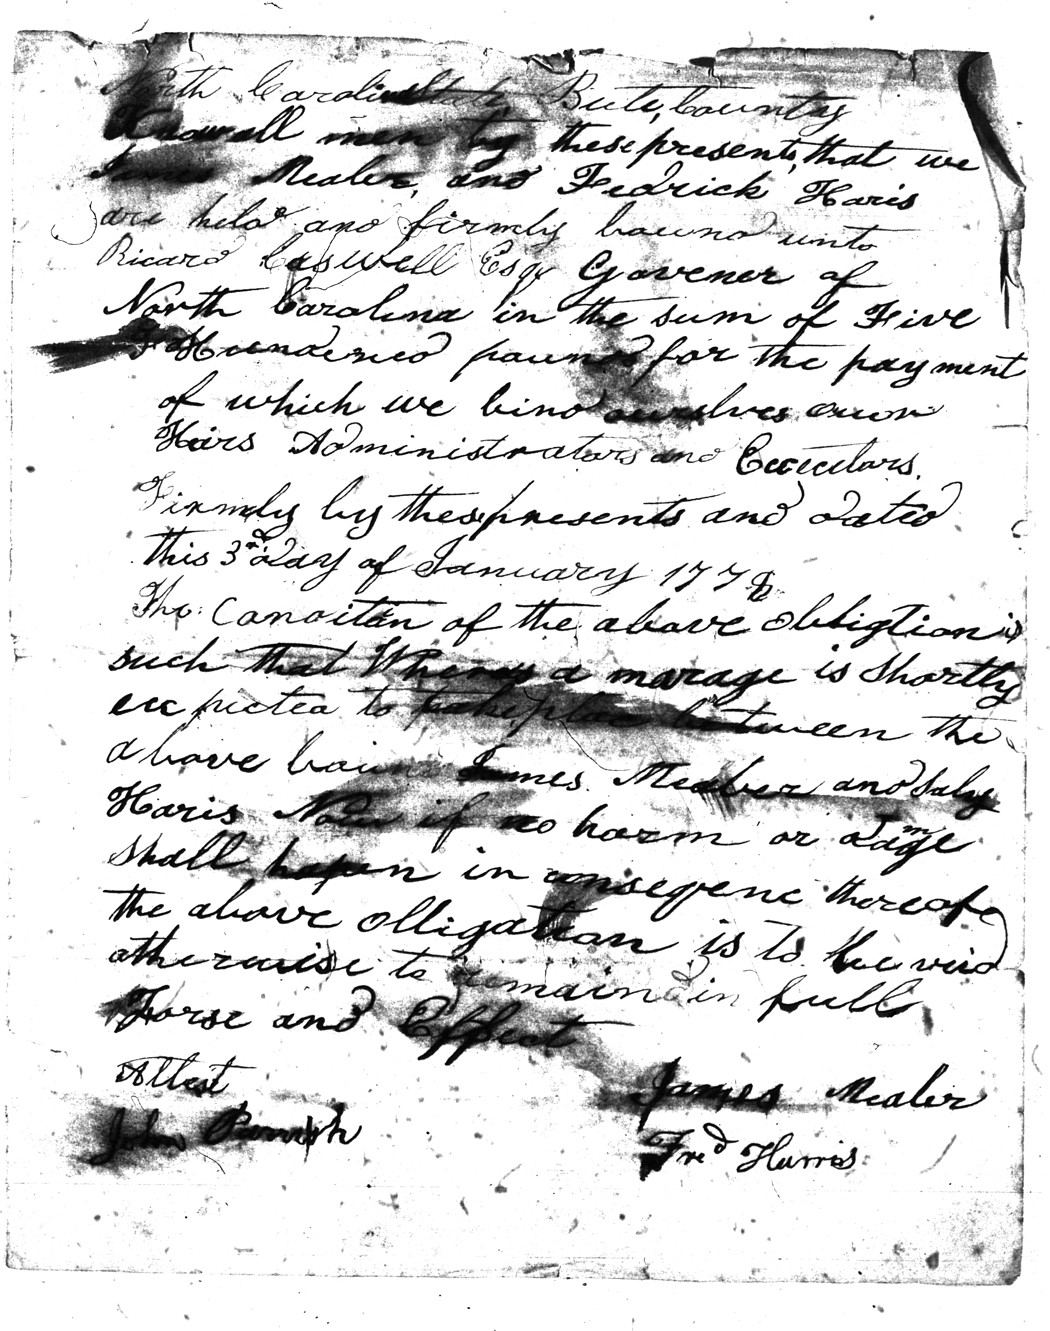 North Carolina Bute County
Know all men by these presents, that we
James Mealer, and Fedrick Haris
are held and firmly bound unto
Ricard Caswell Esqr Govener of
North Carolina in the sum of Five
Hundered pound for the payment
of which we bind ourselves ouor
Hairs Administrators and Eccecutors.
Firmly by thes presents and dated
this 3rd day of January 1778
The Conditan of the above Obbligtion is
such that Wheras a marage is Shortly
eccpected to take place between the
above boun James Mealer and Saly
Haris Now if no harm or damge
Shall hapen in consegene thereofe
the above olligation is to be void
otherwise to remain in full
Forse and Effect
Attest
James Mealer
John Parrish
Fred Harris